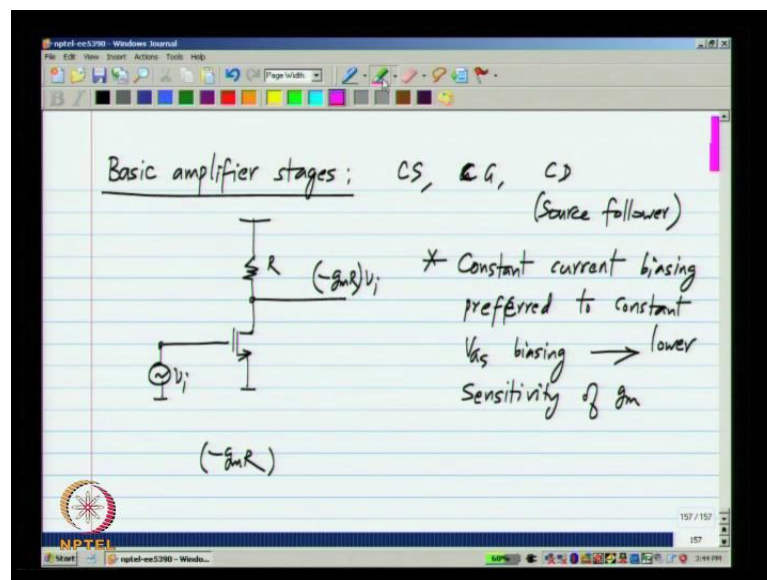 nptel-ee5390 - Windows Journal
File Edit View Insert Actions Tools Help
Page Width
B I
Basic amplifier stages: CS, CG, CD
(Source follower)
R
(-gmR)vi
vi
(-gmR)
* Constant current biasing
preferred to constant
VGS biasing → lower
Sensitivity of gm
NPTEL
157 / 157
157
Start
nptel-ee5390 - Windo...
60%
3:44 PM